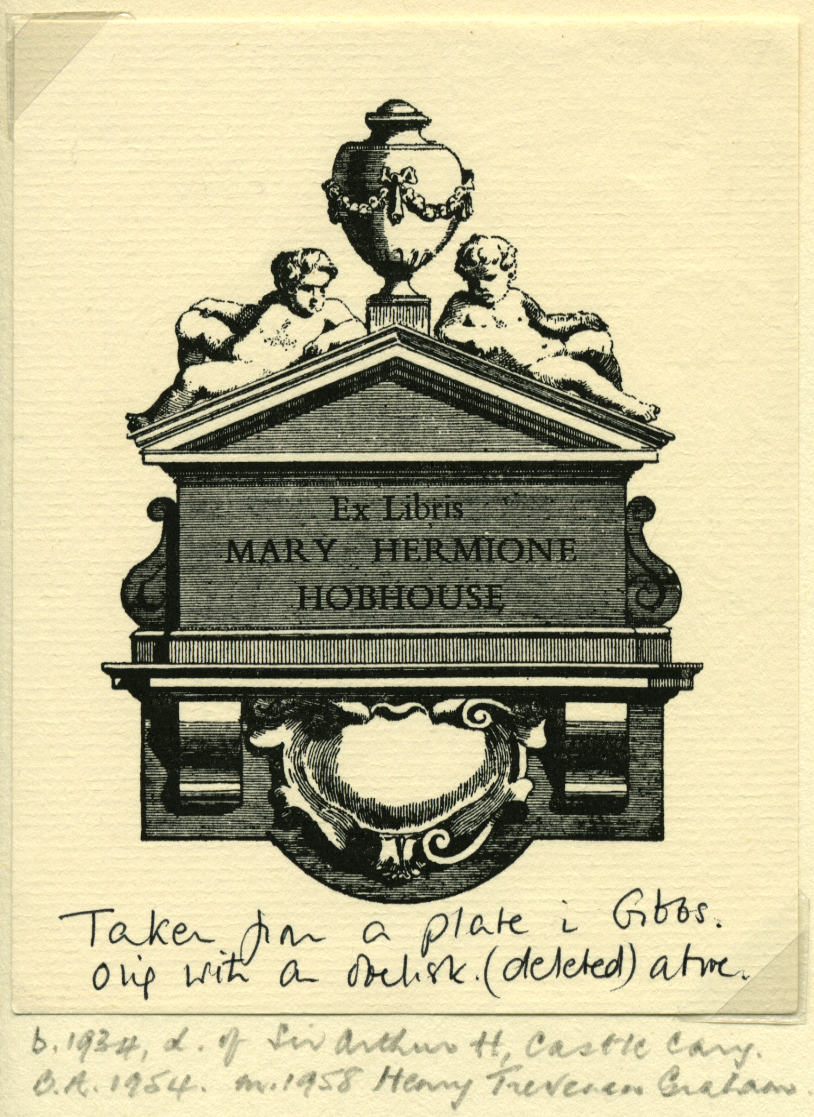 Ex Libris
MARY HERMIONE
HOBHOUSE
Taken from a plate i Gibbs.
orig with an obelisk. (deleted) above.
b. 1934, d. of Sir Arthur H, Castle Cary.
B.A. 1954. m. 1958 Henry Trevenen Graham.